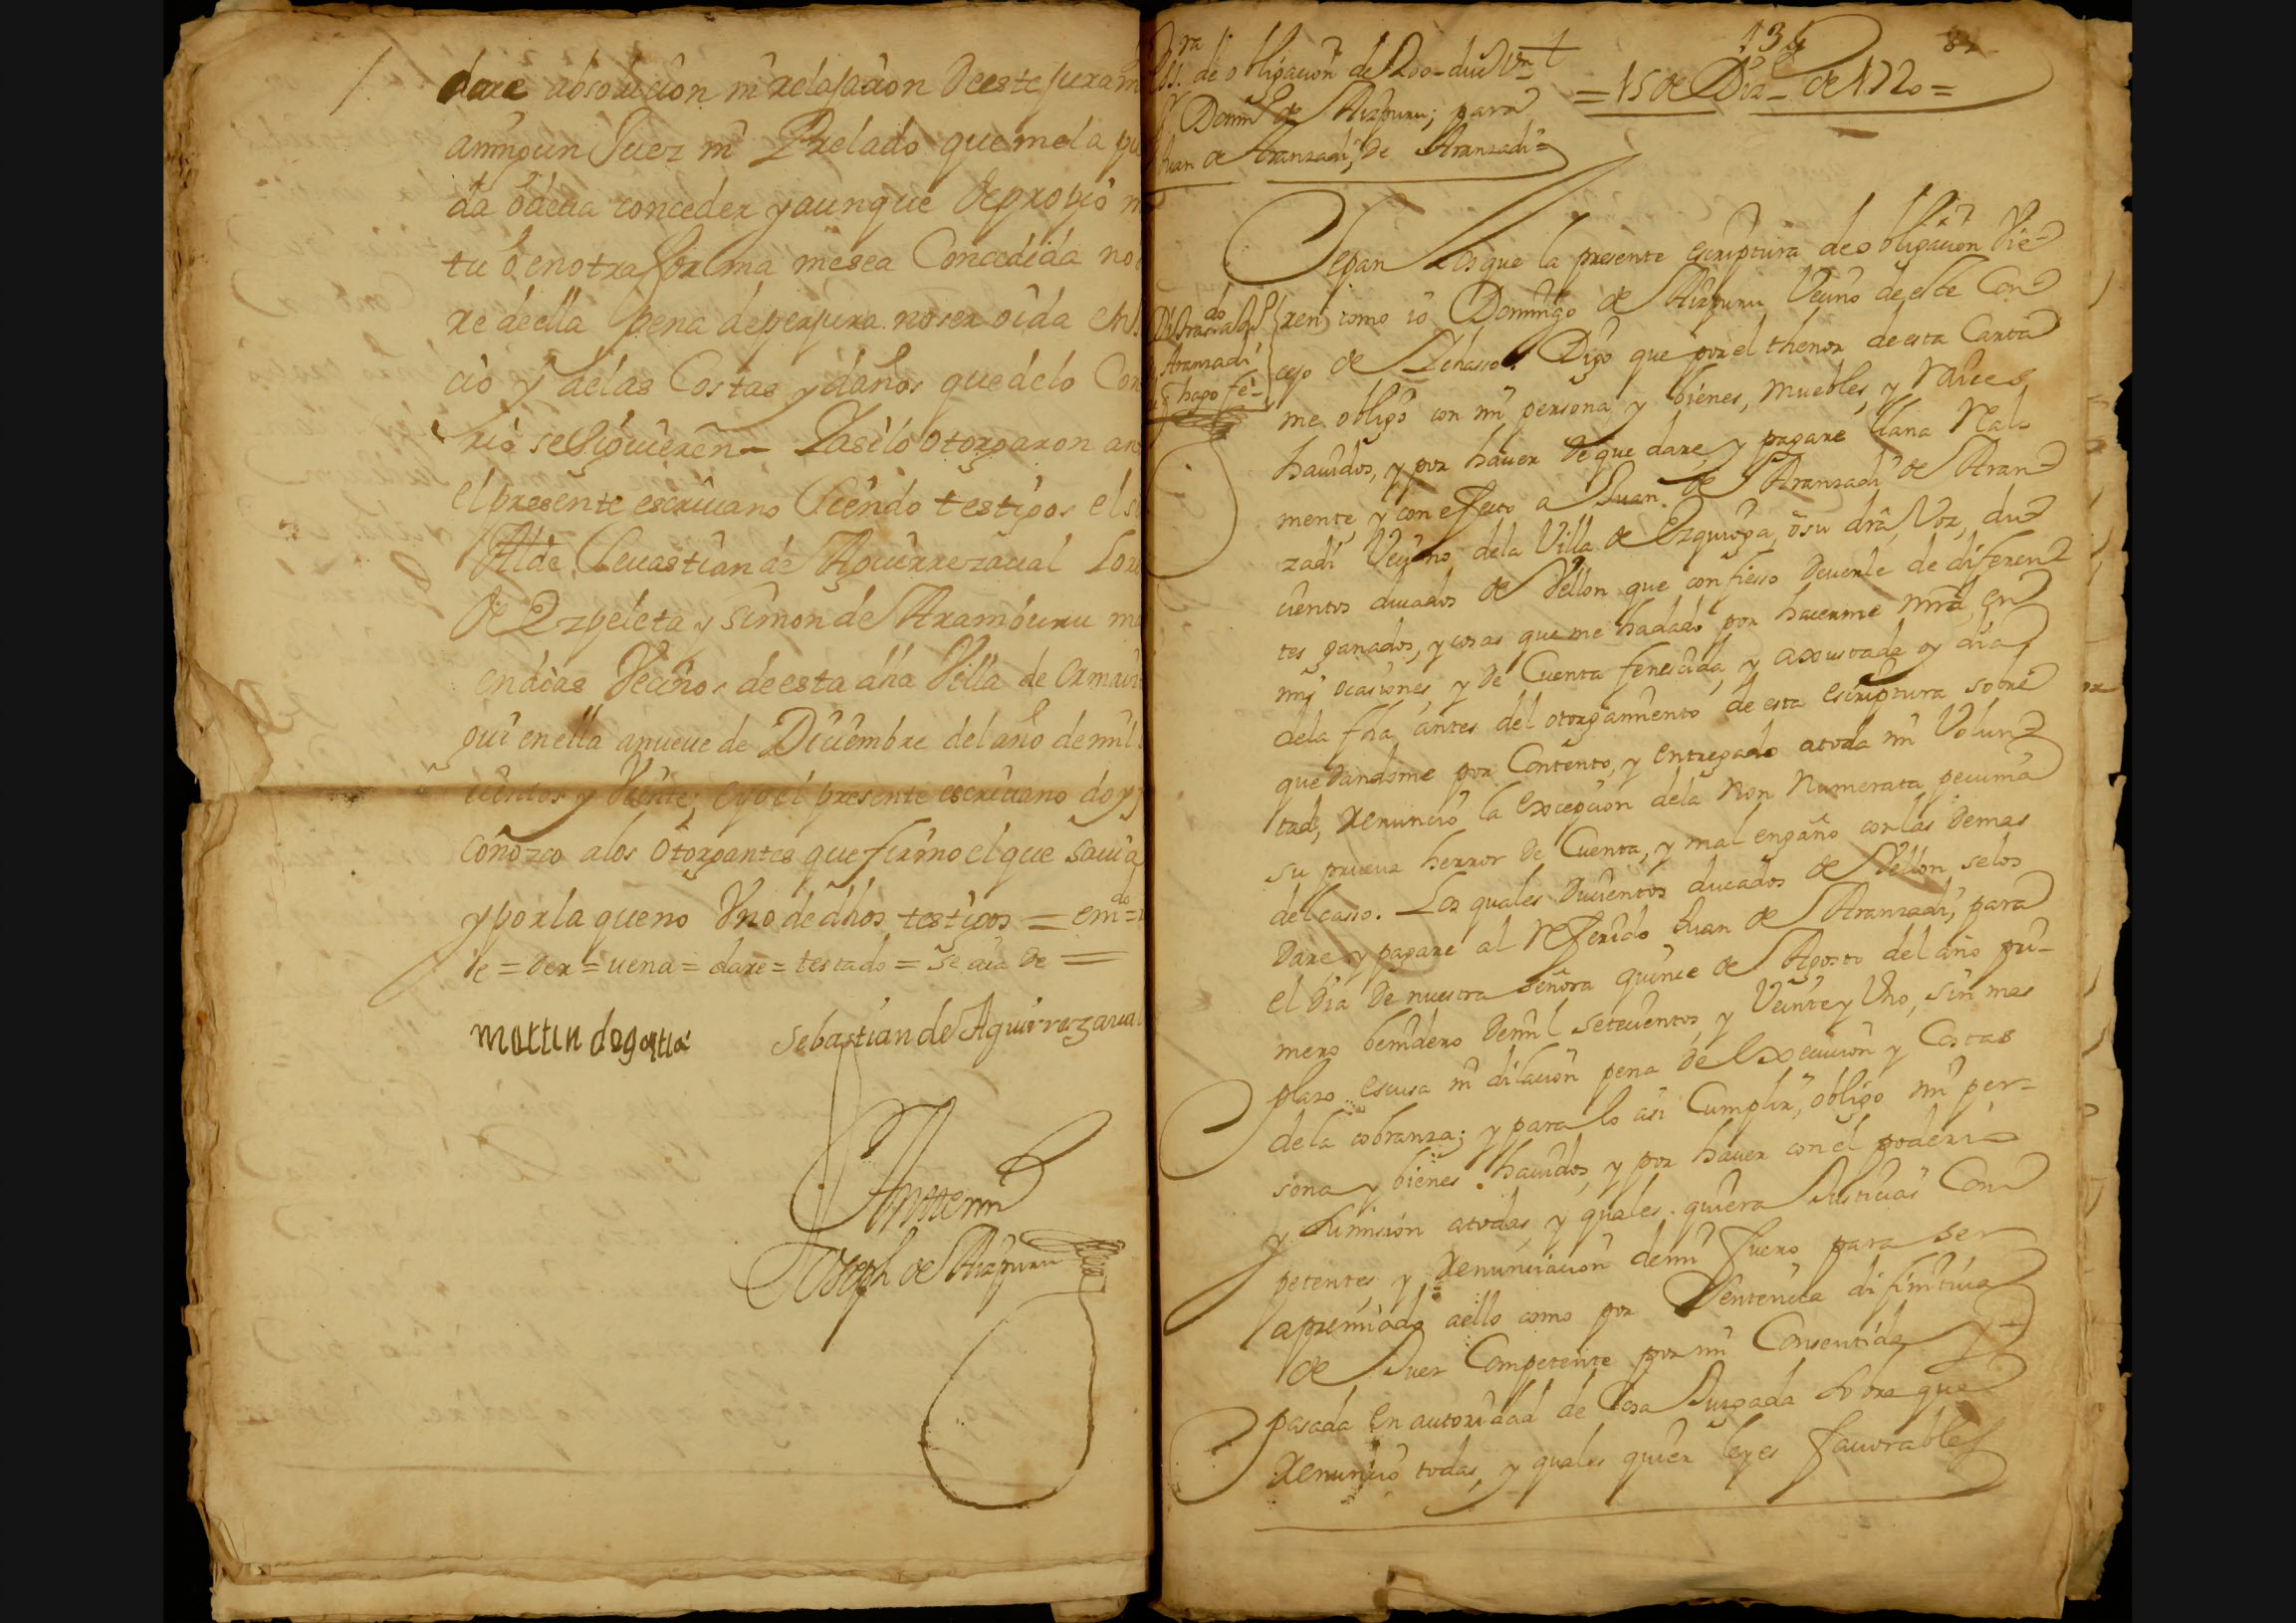 dare absolucion ni relaxacion de este juram
aningun Juez ni Prelado que mela pu
da o deua conceder y aunque de propio m
tu o en otra forma mesea Concedida no
re de ella pena de perjura no ser oida en
cio y delas Costas y daños que delo Con
rio se siguieren = Y asi lo otorgaron an
el presente escriuano siendo testigos el s
Alde. Seuastian de Aguirrezaual Lore
de Ezpeleta y Simon de Aramburu
en dias Vecinos de esta dha Villa de
qui en ella a nueue de Diciembre del año de mil
cientos y Veinte; e yo el presente escriuano doy
conozco alos otorgantes que firmo el que sauia
y por la que no Vno de dhos testigos = emdo =
e = der = uena = dare = testado = se = de =
martin de gastia
Sebastian de Aguirrezaual
Ante mi
Joseph de Aizpuru
134
82
= 15 de Diz.e de 1720 =
de obligacion de 200 duc Vn
Domgo de Aizpuru; para
Juan de Aranzadi, de Aranzadi =
Sepan los que la presente escriptura de obligacion vie-
ren como io Domingo de Aizpuru Vecino de este Con
cejo de Ichasso. Digo que por el thenor de esta Carta
Aranzadi
hago fe =
me obligo con mi persona y bienes, muebles, y raices
hauidos, y por hauer de que dare, y pagare llana Real
mente, y con efecto a Juan de Aranzadi de Aran
zadi Vecino dela Villa de Ezquioga, o su dra Voz, du
cientos ducados de Vellon que confiesso deuerle de diferen
tes ganados, y cosas que me ha dado por hacerme mrd en
mis ocasiones, y de Cuenta fenescida, y axustada oy dia
dela fha antes del otorgamiento de esta escriptura sobre
que dandome por Contento, y entregado atoda mi Volun
tad, renuncio la Excepcion dela Non Numerata pecunia
su prueua herror de Cuenta, y mal engaño con las demas
del caso. Los quales ducientos ducados de Vellon selos
dare y pagare al Referido Juan de Aranzadi, para
el dia de nuestra señora quince de Agosto del año pri-
mero benidero de mil setecientos, y Veinte y Uno, sin mas
plazo escusa ni dilacion pena de Execucion y Costas
dela cobranza; y para lo asi Cumplir, obligo mi per-
sona y bienes hauidos, y por hauer con el poderi
y sumision atodas, y quales quiera Justicias Con
petentes, y renunciacion demi fuero para ser
apremiado aello como por Sentencia difinitiua
de Juez Competente por mi Consentida y
pasada en autoridad de Cosa Juzgada sobre que
renuncio todas, y quales quier leyes fauorables